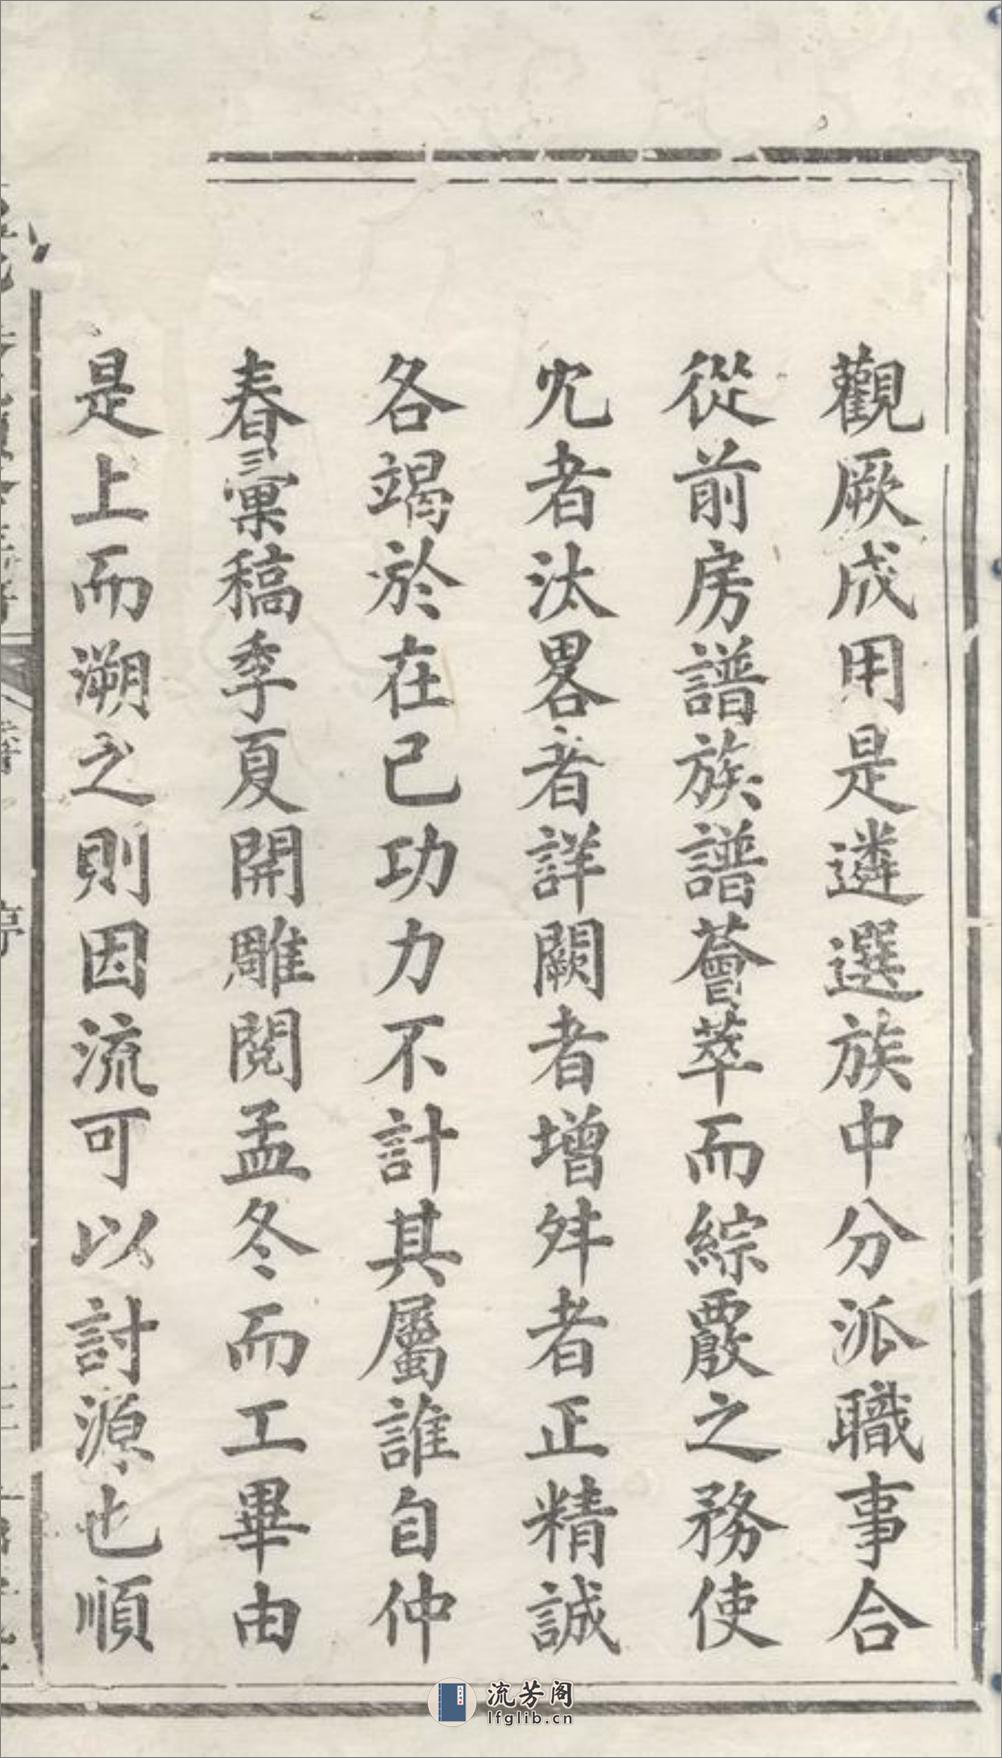 觀厥成用是遴選族中分派職事合
從前房譜族譜薈萃而綜覈之務使
冗者汰畧者詳闕者增舛者正精誠
各竭於在己功力不計其屬誰自仲
春彙稿季夏開雕閱孟冬而工畢由
是上而溯之則因流可以討源也順
流芳阁
lfglib.cn